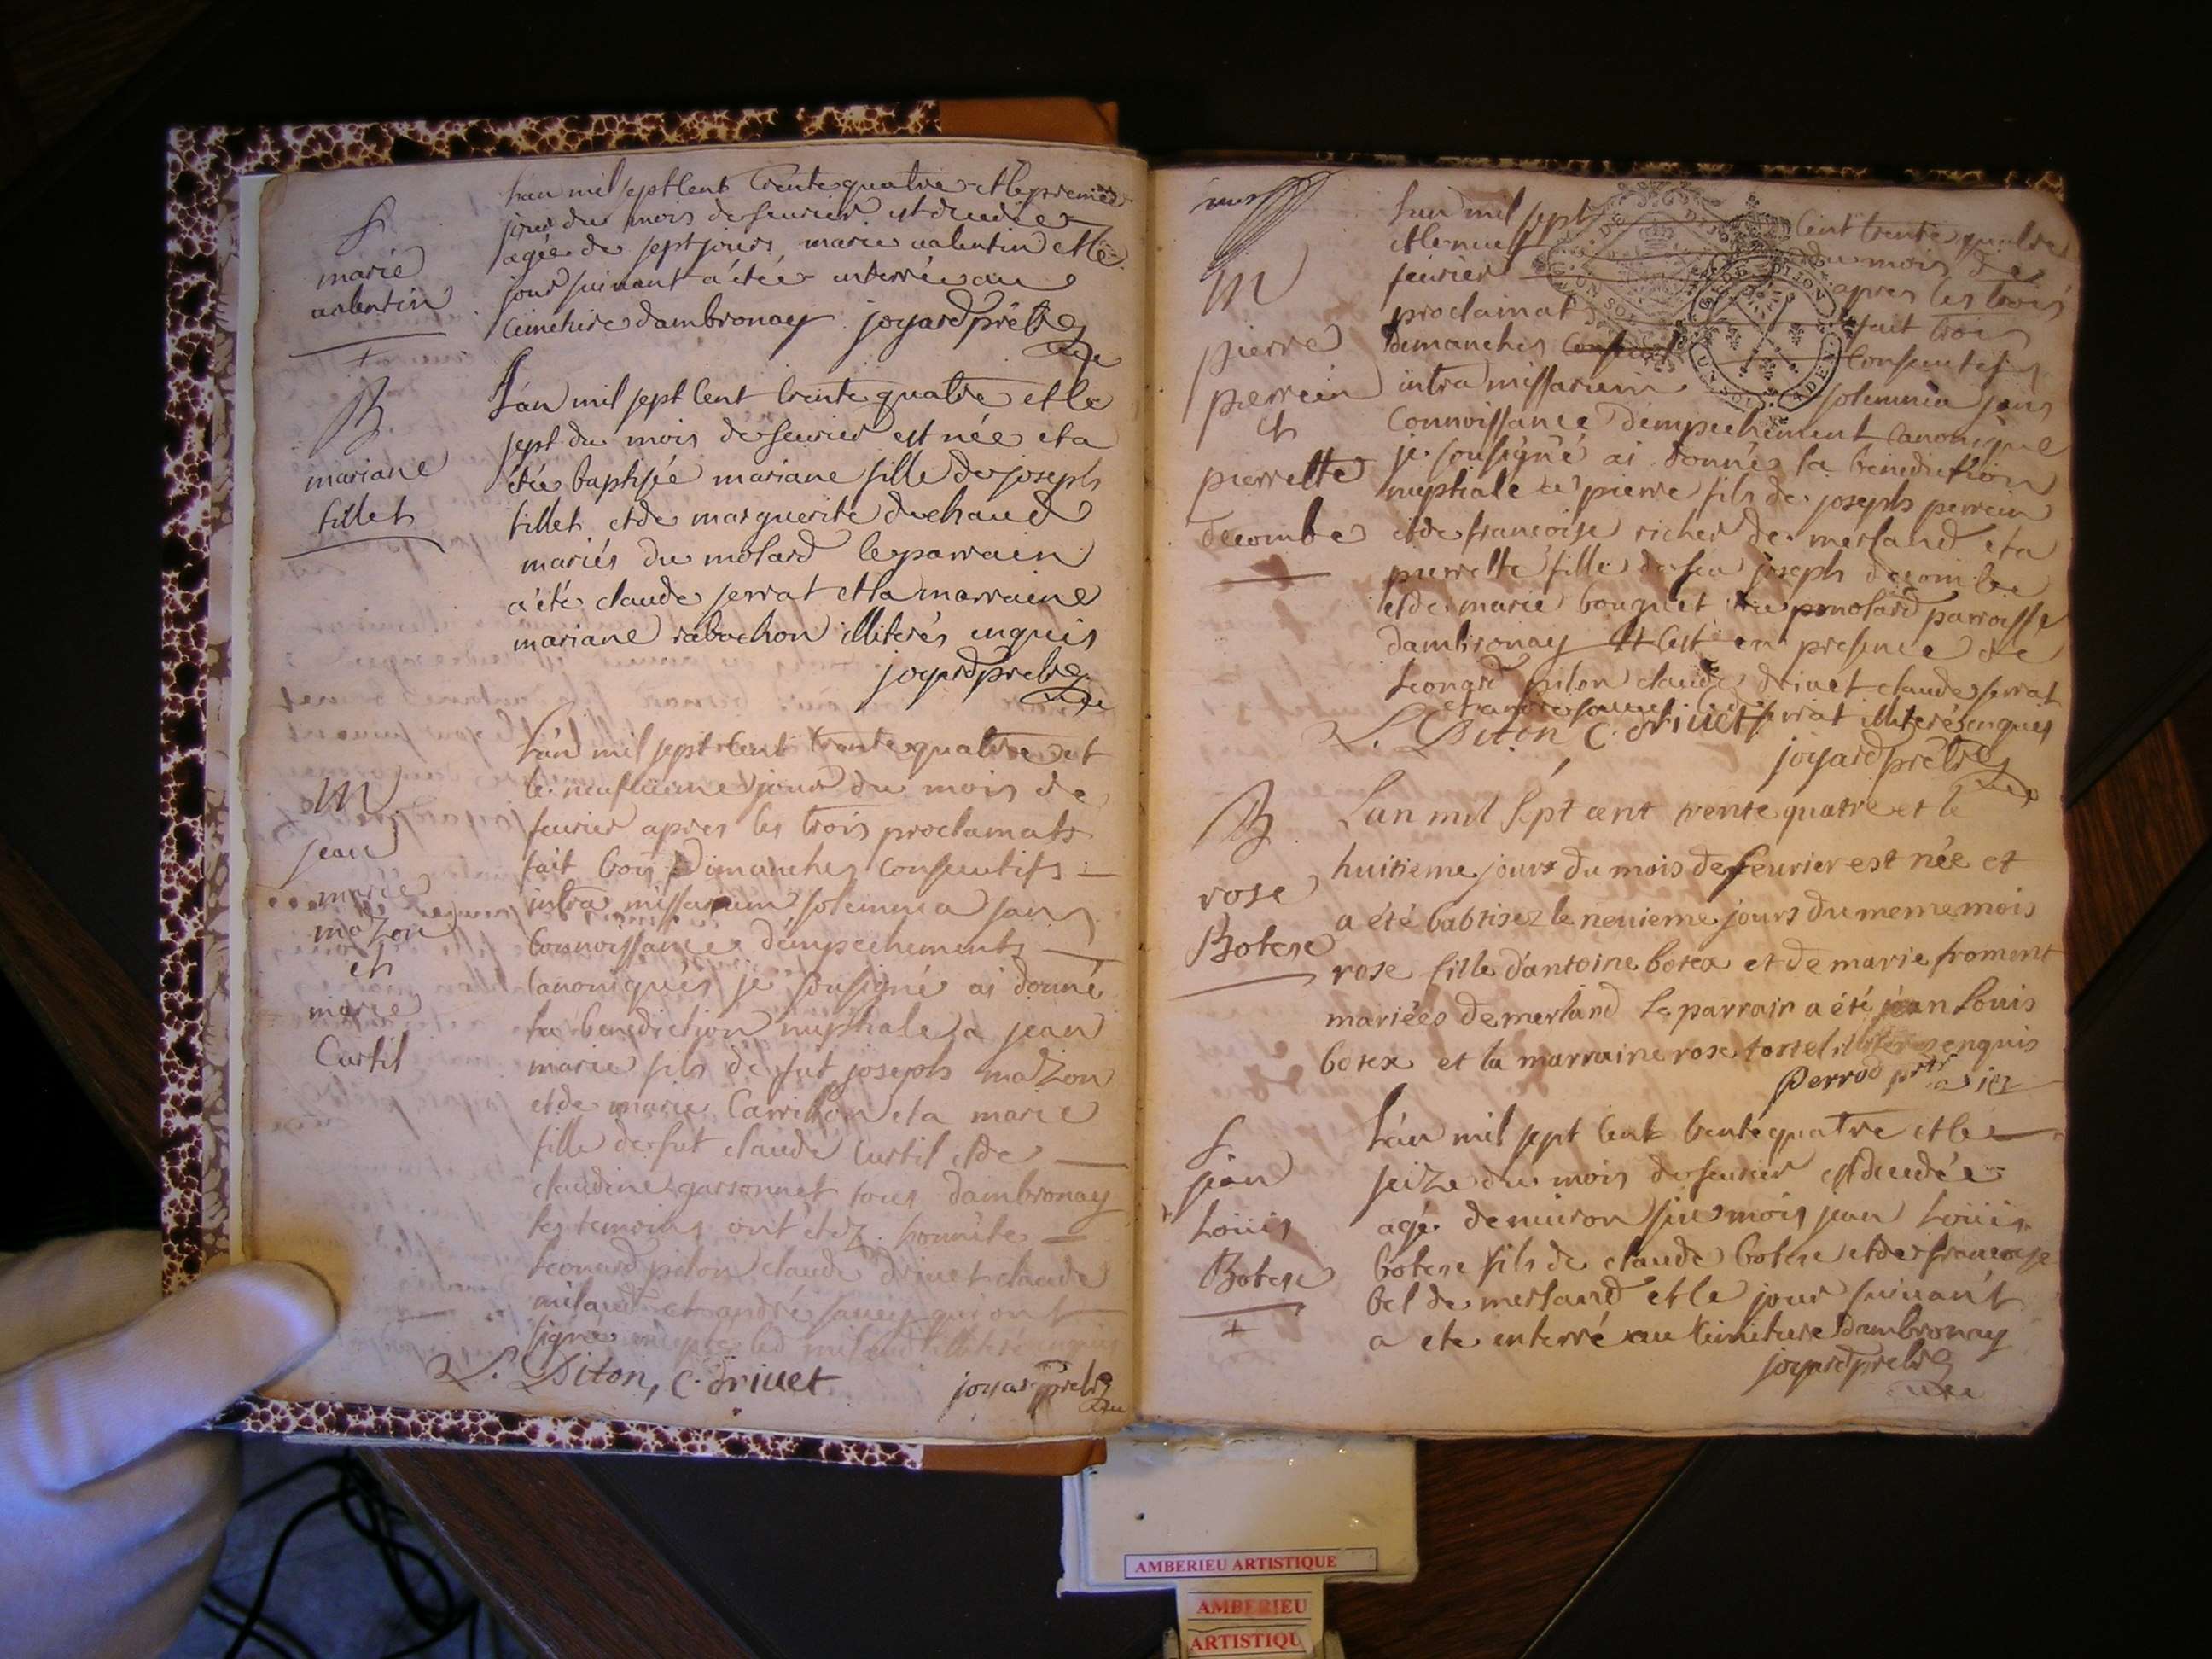 S
marie
valentin
Lan mil sept cent trente quatre et le premier
jour du mois de feurier est decedée
agée de sept jours marie valentin et le
jour suivant a étée enterrée au
cimetiere dambronay joyard prêtre
B
mariane
fillet
Lan mil sept cent trente quatre et le
sept du mois de feurier est née et a
étée baptisée mariane fille de joseph
fillet et de marguerite duchaud
mariés du molard le parrain
a été claude serrat et la marraine
mariane rabuchon illiterés enquis
joyard prêtre
M
jean
marie
mazon
et
marie
Curtil
Lan mil sept cent trente quatre et
le neufuieme jour du mois de
feurier apres les trois proclamats
fait trois Dimanches consecutifs
intra missarum solemnia sans
connoissance dempechements
canoniques je sousigné ai donné
la benediction nuptiale a jean
marie fils de fut joseph mazon
et de marie Carrichon et a marie
fille de fut claude curtil et de
claudine garsonnet tous dambronay
les temoins ont étéz honnête
Leonard piton claude driuet claude
milaud et andré sauey qui ont
signé excepté led milaud illiteré enquis
L. Diton, C. driuet joyard prêtre
M
pierre
perrein
et
pierrette
decombe
Lan mil sept cent trente quatre
et le neuf du mois de
feurier apres les trois
proclamat fait trois
dimanches consecutifs
intra missarum solemnia sans
connoissance dempechement canonique
je sousigné ai donné la benediction
nuptiale a pierre fils de joseph perrein
et de francoise richer de merland et a
pierrette fille de feu joseph decombe
et de marie bouguet du molard parroisse
dambronay et cest en presence de
Leonard piton claude driuet claude serrat
et andre sauey led serrat illiteré enquis
L. Diton C. driuet
joyard prêtre
B
rose
Botexe
Lan mil sept cent trente quatre et le
huitieme jours du mois de feurier est née et
a été babtisez le neuieme jours du meme mois
rose fille dantoine botex et de marie froment
mariées de merland le parrain a été jean Louis
botex et la marraine rose tostel illiteres enquis
Perrod
S
jean
Louis
Botexe
Lan mil sept cent trente quatre et le
seize du mois de feurier est decedée
agé denuiron six mois jean Louis
botexe fils de claude botexe et de francoise
bel de merland et le jour suiuant
a ete enterré au cimetiere dambronay
joyard prêtre
AMBERIEU ARTISTIQUE
AMBERIEU
ARTISTIQU